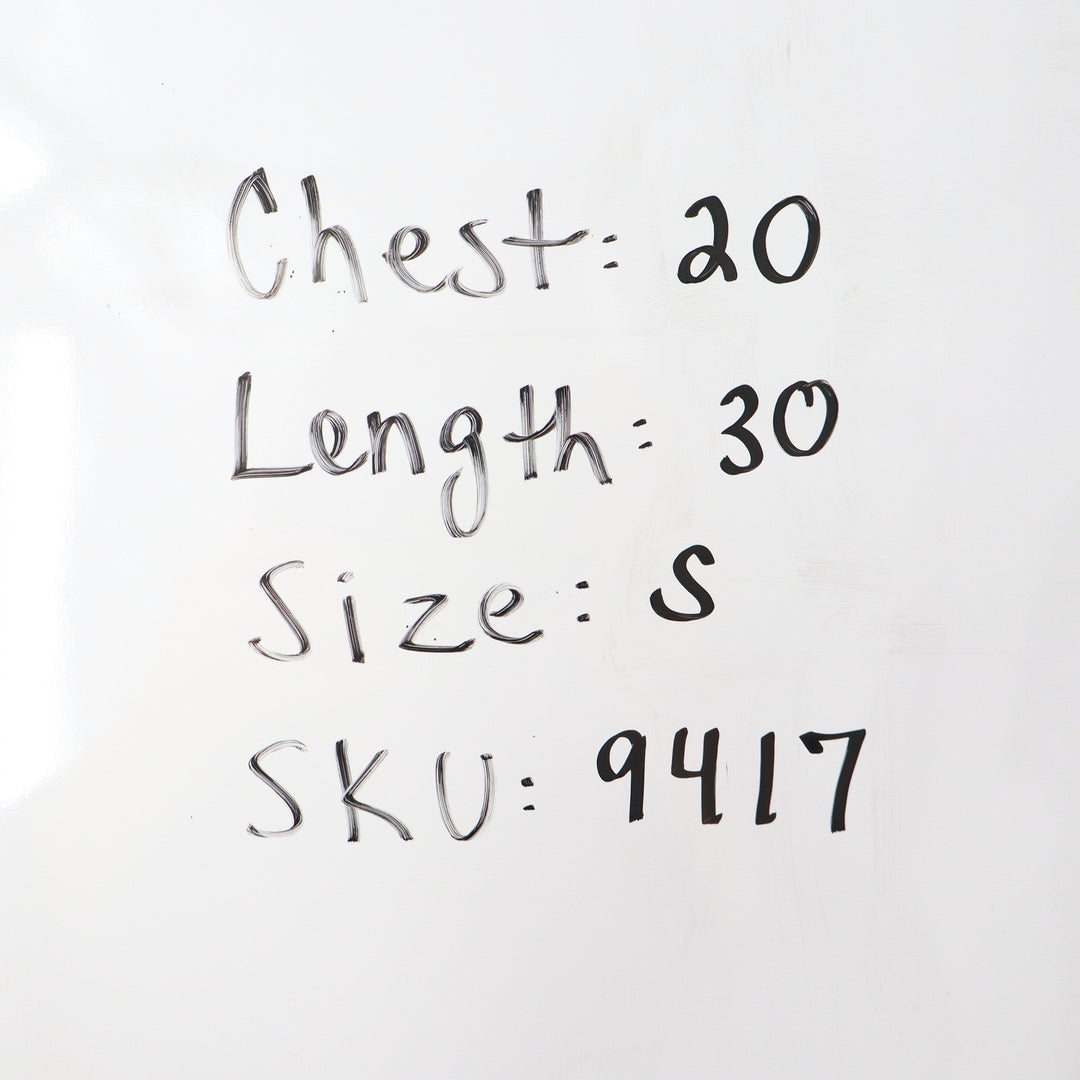 Chest: 20
Length: 30
Size: S
SKU: 9417